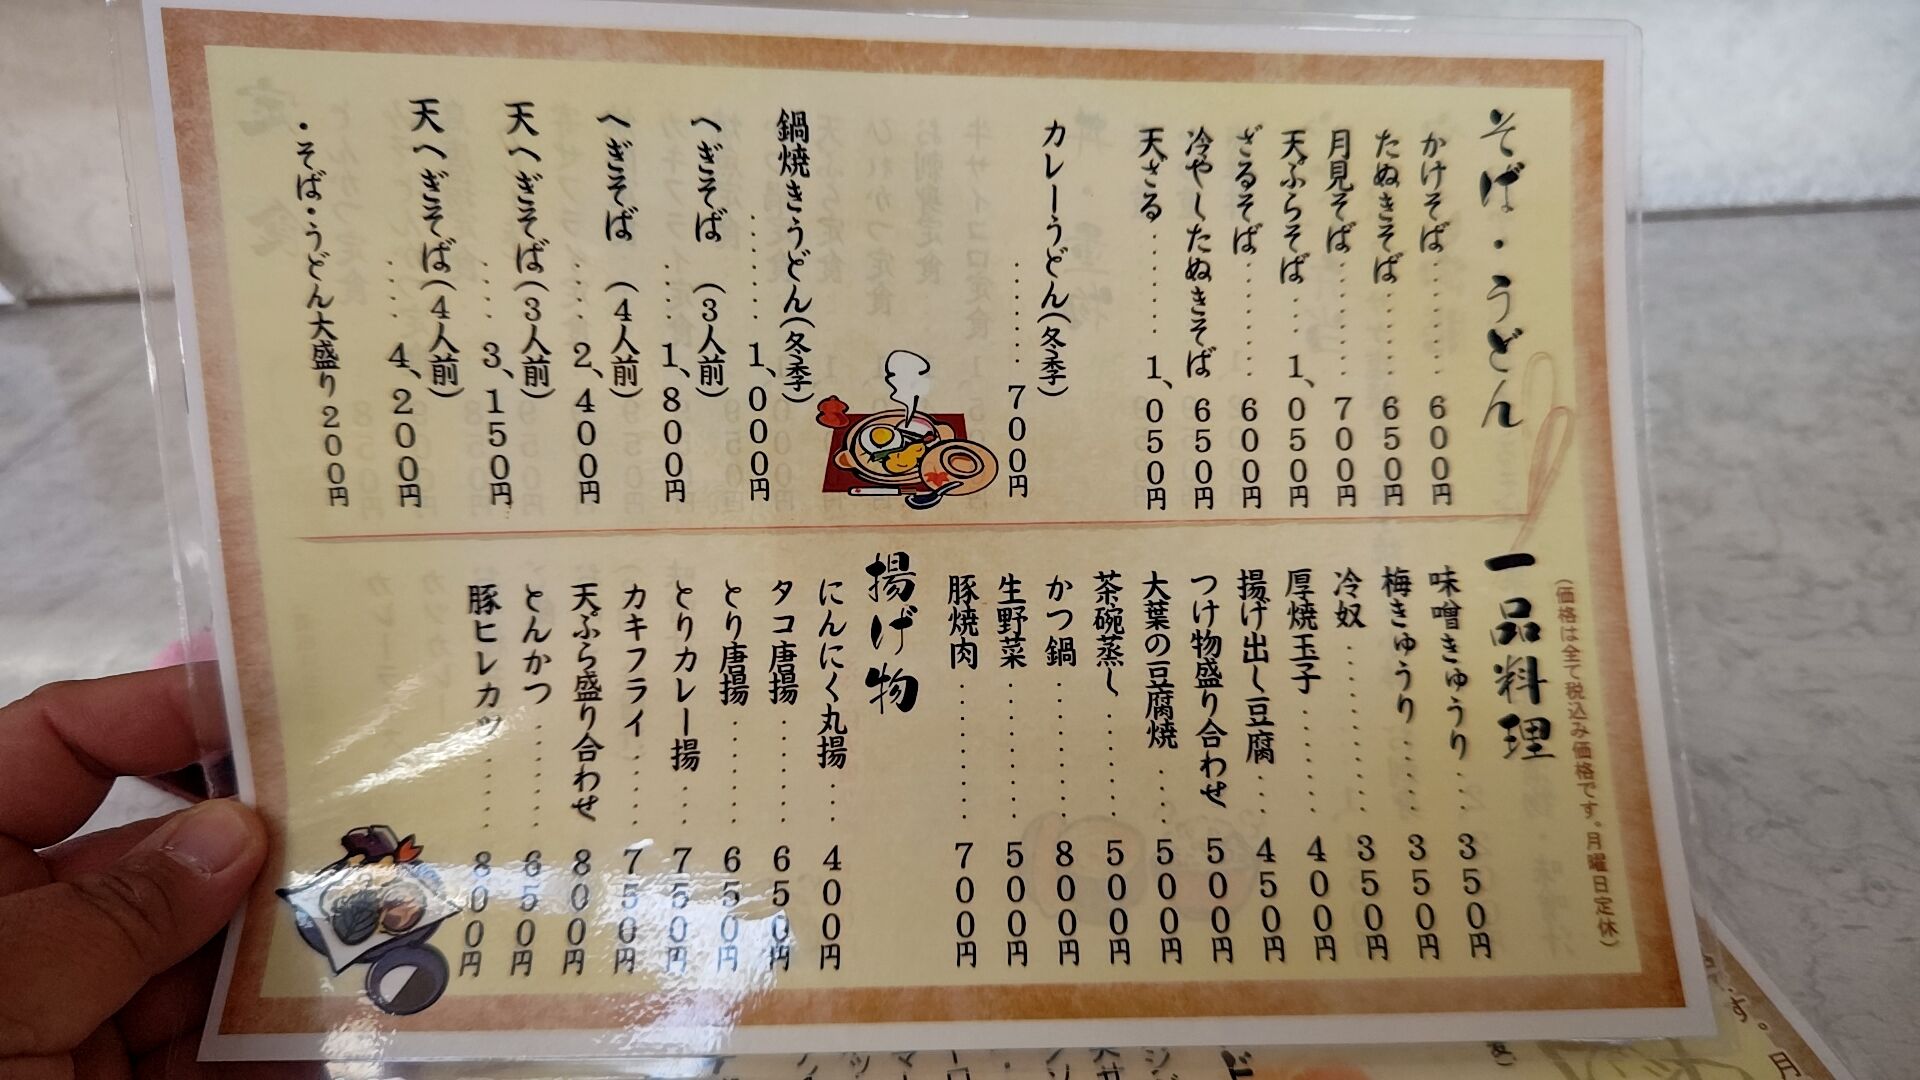 そば・うどん
かけそば......... 600円
たぬきそば....... 650円
月見そば......... 700円
天ぷらそば... 1、050円
ざるそば......... 600円
冷やしたぬきそば 650円
天ざる....... 1、050円
カレーうどん(冬季)
........ 700円
鍋焼きうどん(冬季)
....... 1、000円
へぎそば (3人前)
.... 1、800円
へぎそば (4人前)
.... 2、400円
天へぎそば(3人前)
.... 3、150円
天へぎそば(4人前)
.... 4、200円
・そば・うどん大盛り200円
(価格は全て税込み価格です。月曜日定休)
一品料理
味噌きゅうり... 350円
梅きゅうり..... 350円
冷奴......... 350円
厚焼玉子...... 400円
揚げ出し豆腐... 450円
つけ物盛り合わせ 500円
大葉の豆腐焼... 500円
茶碗蒸し...... 500円
かつ鍋....... 800円
生野菜....... 500円
豚焼肉....... 700円
揚げ物
にんにく丸揚... 400円
タコ唐揚...... 650円
とり唐揚...... 650円
とりカレー揚... 750円
カキフライ..... 750円
天ぷら盛り合わせ 800円
とんかつ...... 650円
豚ヒレカツ..... 800円